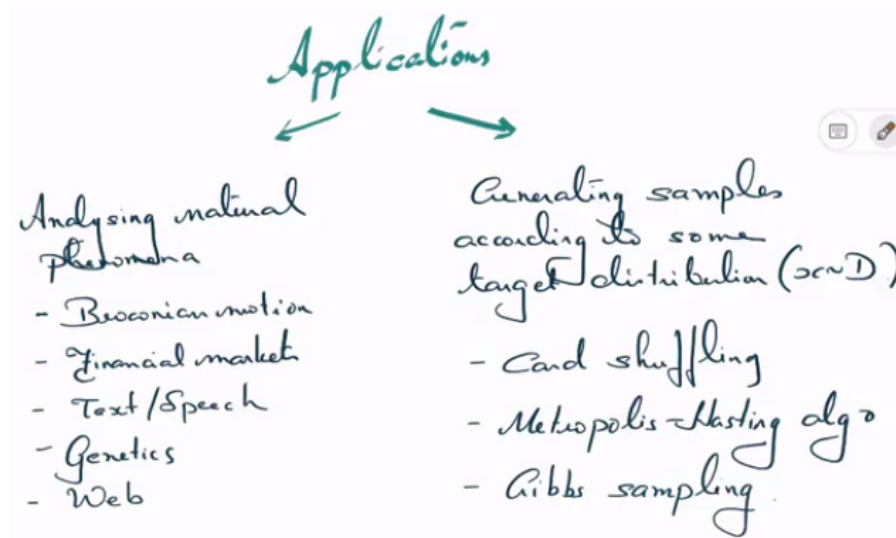 Applications
Analysing natural
phenomena
- Brownian motion
- Financial market
- Text/Speech
- Genetics
- Web
Generating samples
according to some
target distribution (x~D)
- Card shuffling
- Metropolis-Hasting algo
- Gibbs sampling